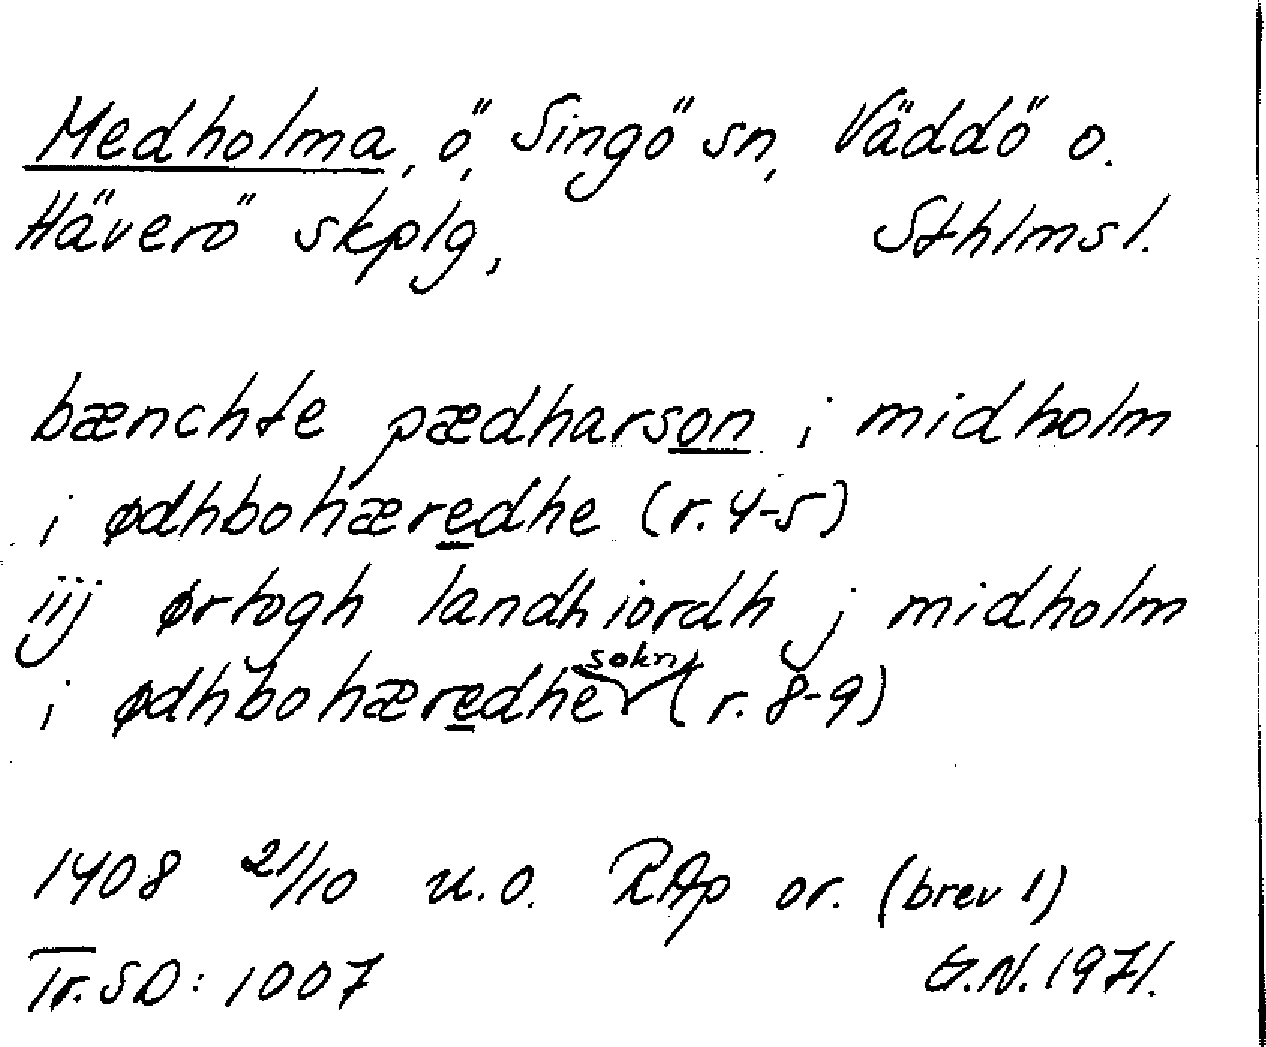 Medholma, ö, Singö sn, Väddö o.
Häverö skplg, Sthlms l.
bænchte pædharson i midholm
i ødhbohæredhe (r. 4-5)
iij ørtogh landh iordh j midholm
i ødhbohæredhe sokn (r. 8-9)
1408 21/10 u.o. RAp or. (brev 1)
Tr. SD: 1007 G.N. 1971.